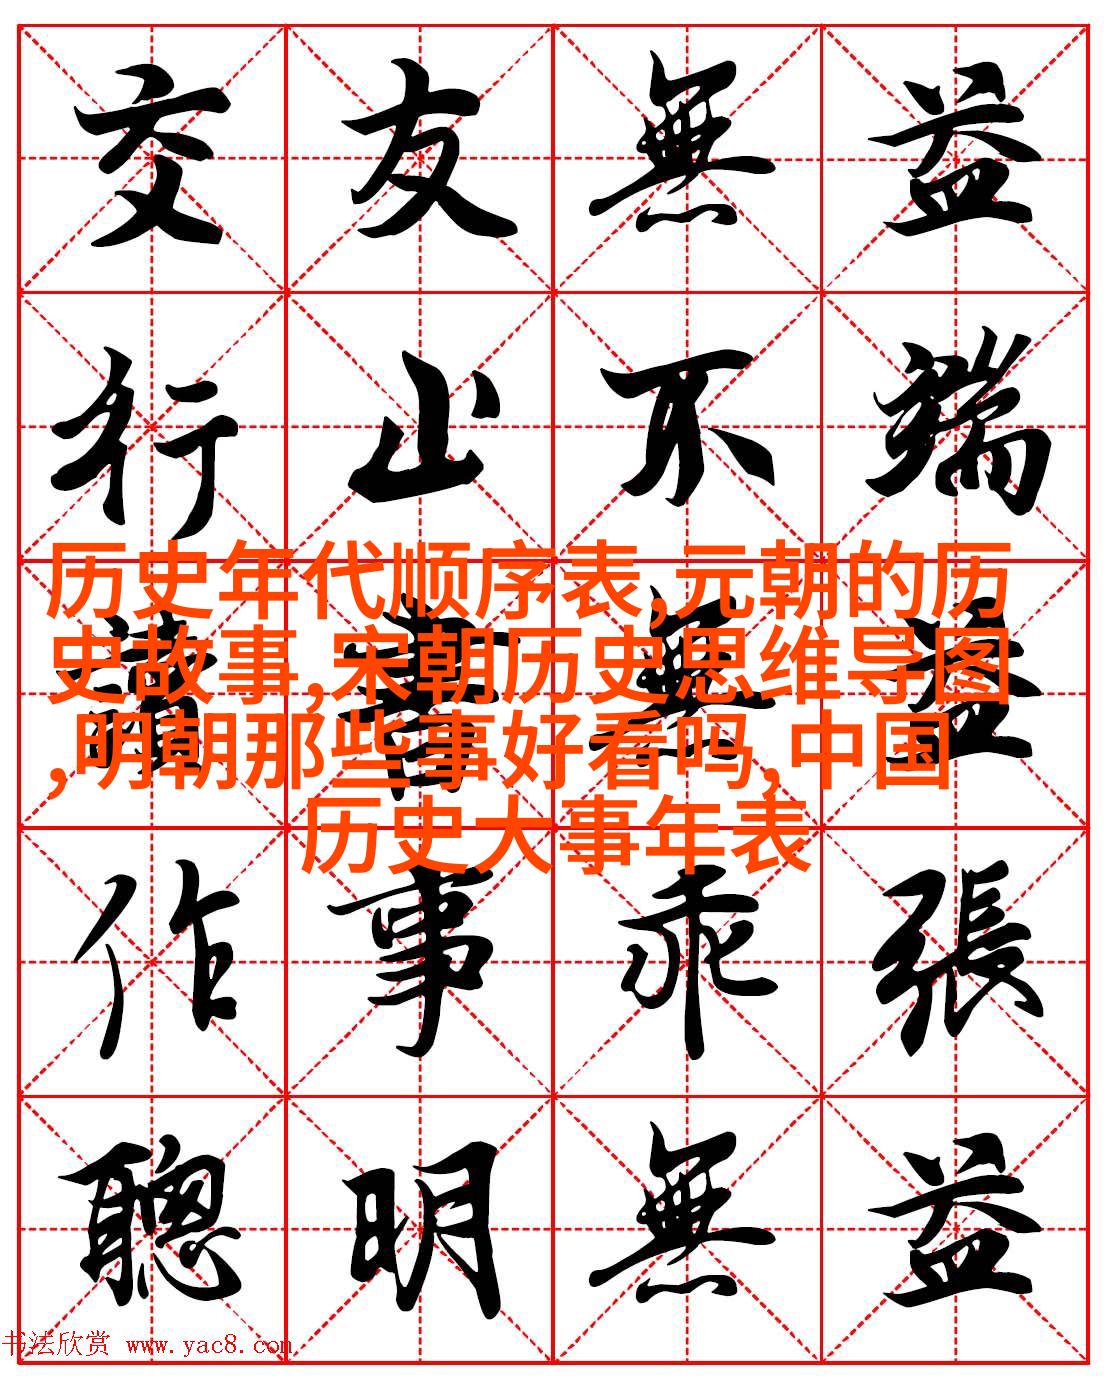 交友無益
行止不端
讀書無益
作事乖張
聰明無益
历史年代顺序表,元朝的历
史故事,宋朝历史思维导图
,明朝那些事好看吗,中国
历史大事年表
书法欣赏 www.yac8.com